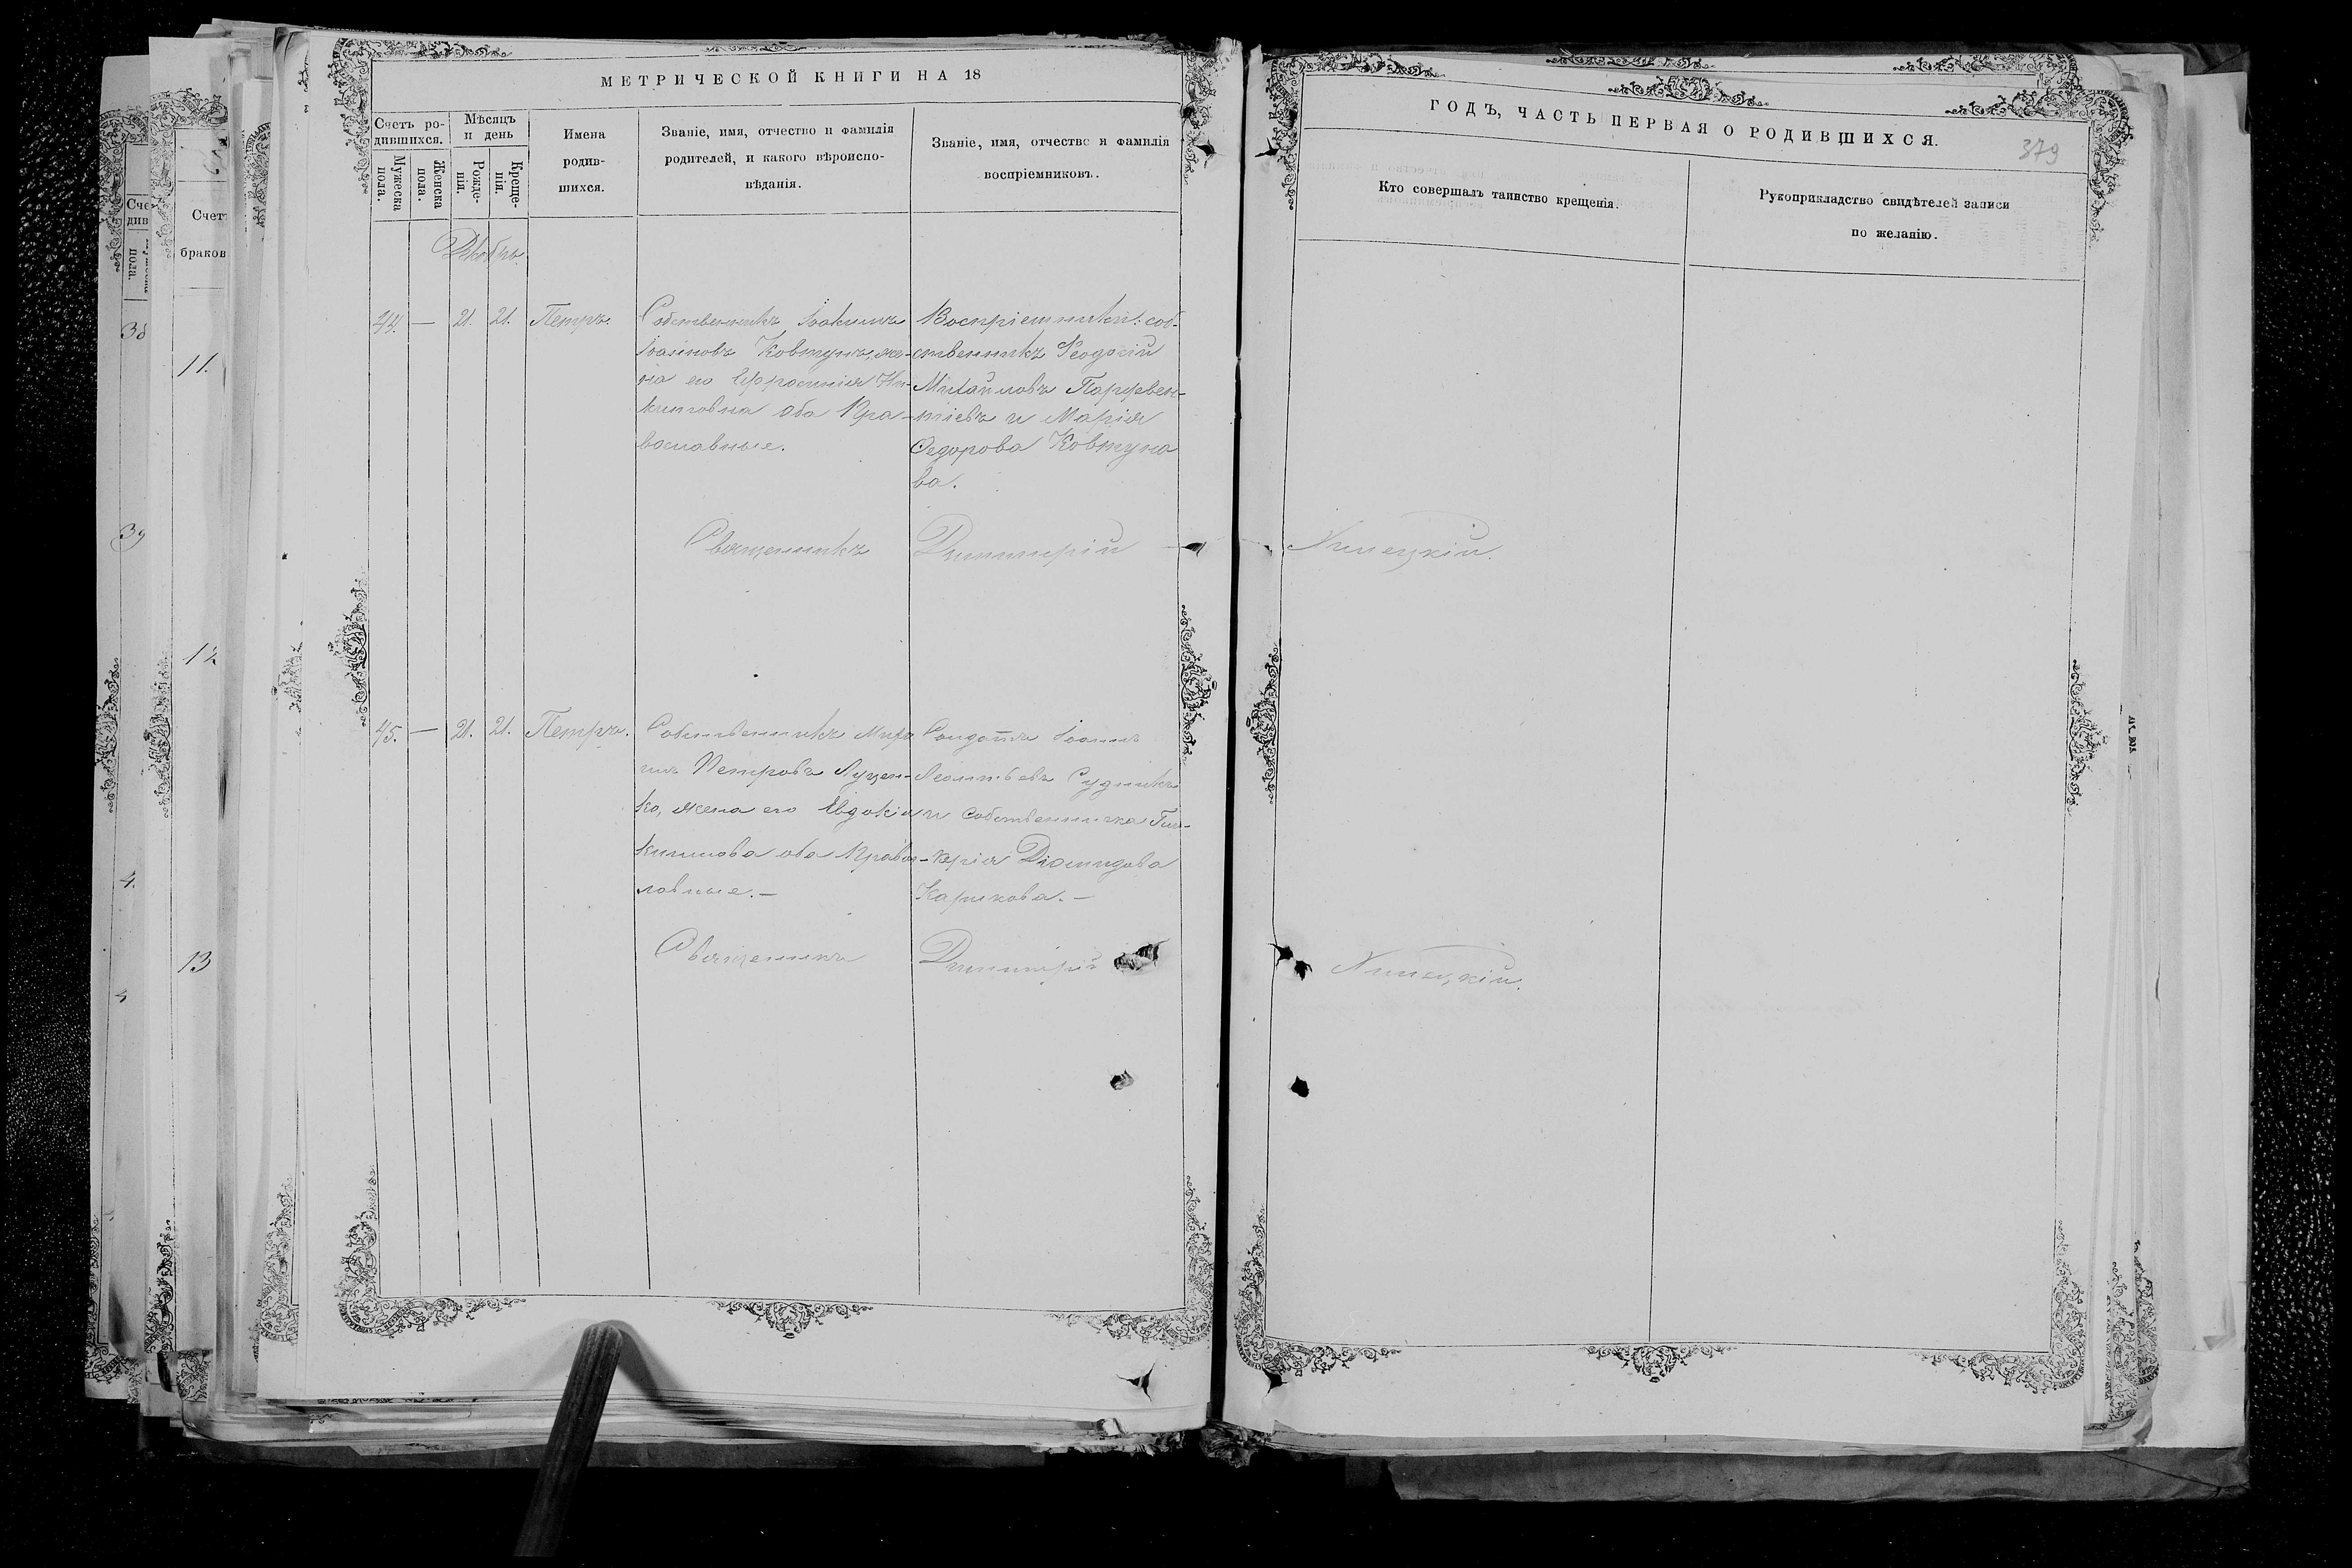 МЕТРИЧЕСКОЙ КНИГИ НА 18
Счетъ ро-
дившихся.
Мужеска
пола.
Женска
пола.
Мѣсяцъ
и день
Рожде-
нія.
Креще-
нія.
Имена
родив-
шихся.
Званіе, имя, отчество и фамилія
родителей, и какого вѣроиспо-
вѣданія.
Званіе, имя, отчество и фамилія
воспріемниковъ.
Декабрь
44. — 21. 21. Петръ.
Собственникъ Іоакимъ
Іоанновъ Ковтунъ, же-
на его Ефросинія Ни-
китовна оба Пра-
вославные.
Воспріемники: соб-
ственникъ Ѳеодосій
Михайловъ Парфевен-
тіевъ и Марія
Ѳедорова Ковтуно
ва.
Священникъ Димитрій
45. — 21. 21. Петръ.
Собственникъ Миро
нъ Петровъ Луцен-
ко, жена его Евдокія
оба Правос-
лавные. —
Солдатъ Іоаннъ
Леонтьевъ Судникъ
и собственничка Гли-
керія Діомидова
Карпкова. —
Священникъ Димитрій
ГОДЪ, ЧАСТЬ ПЕРВАЯ О РОДИВШИХСЯ.
379
Кто совершалъ таинство крещенія.
Рукоприкладство свидѣтелей записи
по желанію.
Липецкій.
Липецкій.
Счетъ
браков
11.
12
13
38
39